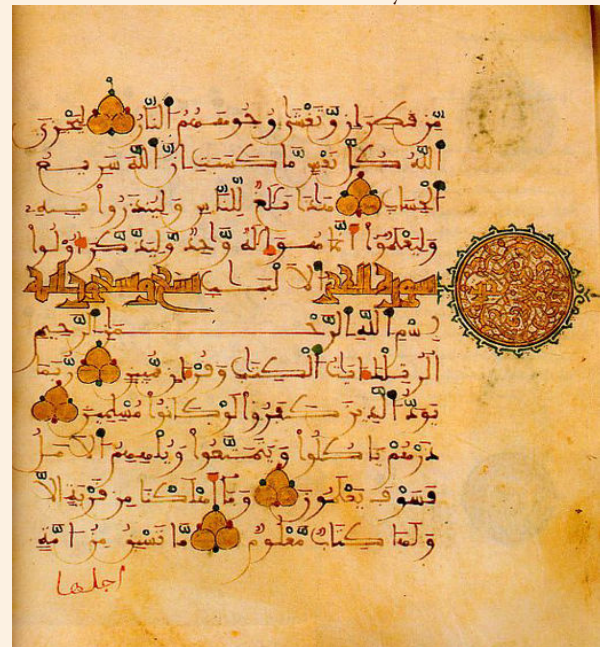 مِّن قَطِرَانٍ وَّتَغْشَىٰ وُجُوهَهُمُ النَّارُ لِيَجْزِيَ
اللَّهُ كُلَّ نَفْسٍ مَّا كَسَبَتْ إِنَّ اللَّهَ سَرِيعُ
الْحِسَابِ هَٰذَا بَلَٰغٌ لِّلنَّاسِ وَلِيُنذَرُوا بِهِ
وَلِيَعْلَمُوا أَنَّمَا هُوَ إِلَٰهٌ وَّاحِدٌ وَلِيَذَّكَّرَ أُوْلُوا
سورة الحجر الْأَلْبَٰبِ تسع وتسعون اية
بِسْمِ اللَّهِ الرَّحْمَٰنِ الرَّحِيمِ
الٓر تِلْكَ ءَايَٰتُ الْكِتَٰبِ وَقُرْءَانٍ مُّبِينٍ رُّبَمَا
يَوَدُّ الَّذِينَ كَفَرُوا لَوْ كَانُوا مُسْلِمِينَ
ذَرْهُمْ يَأْكُلُوا وَيَتَمَتَّعُوا وَيُلْهِهِمُ الْأَمَلُ
فَسَوْفَ يَعْلَمُونَ وَمَا أَهْلَكْنَا مِن قَرْيَةٍ إِلَّا
وَلَهَا كِتَابٌ مَّعْلُومٌ مَّا تَسْبِقُ مِنْ أُمَّةٍ
اجلها